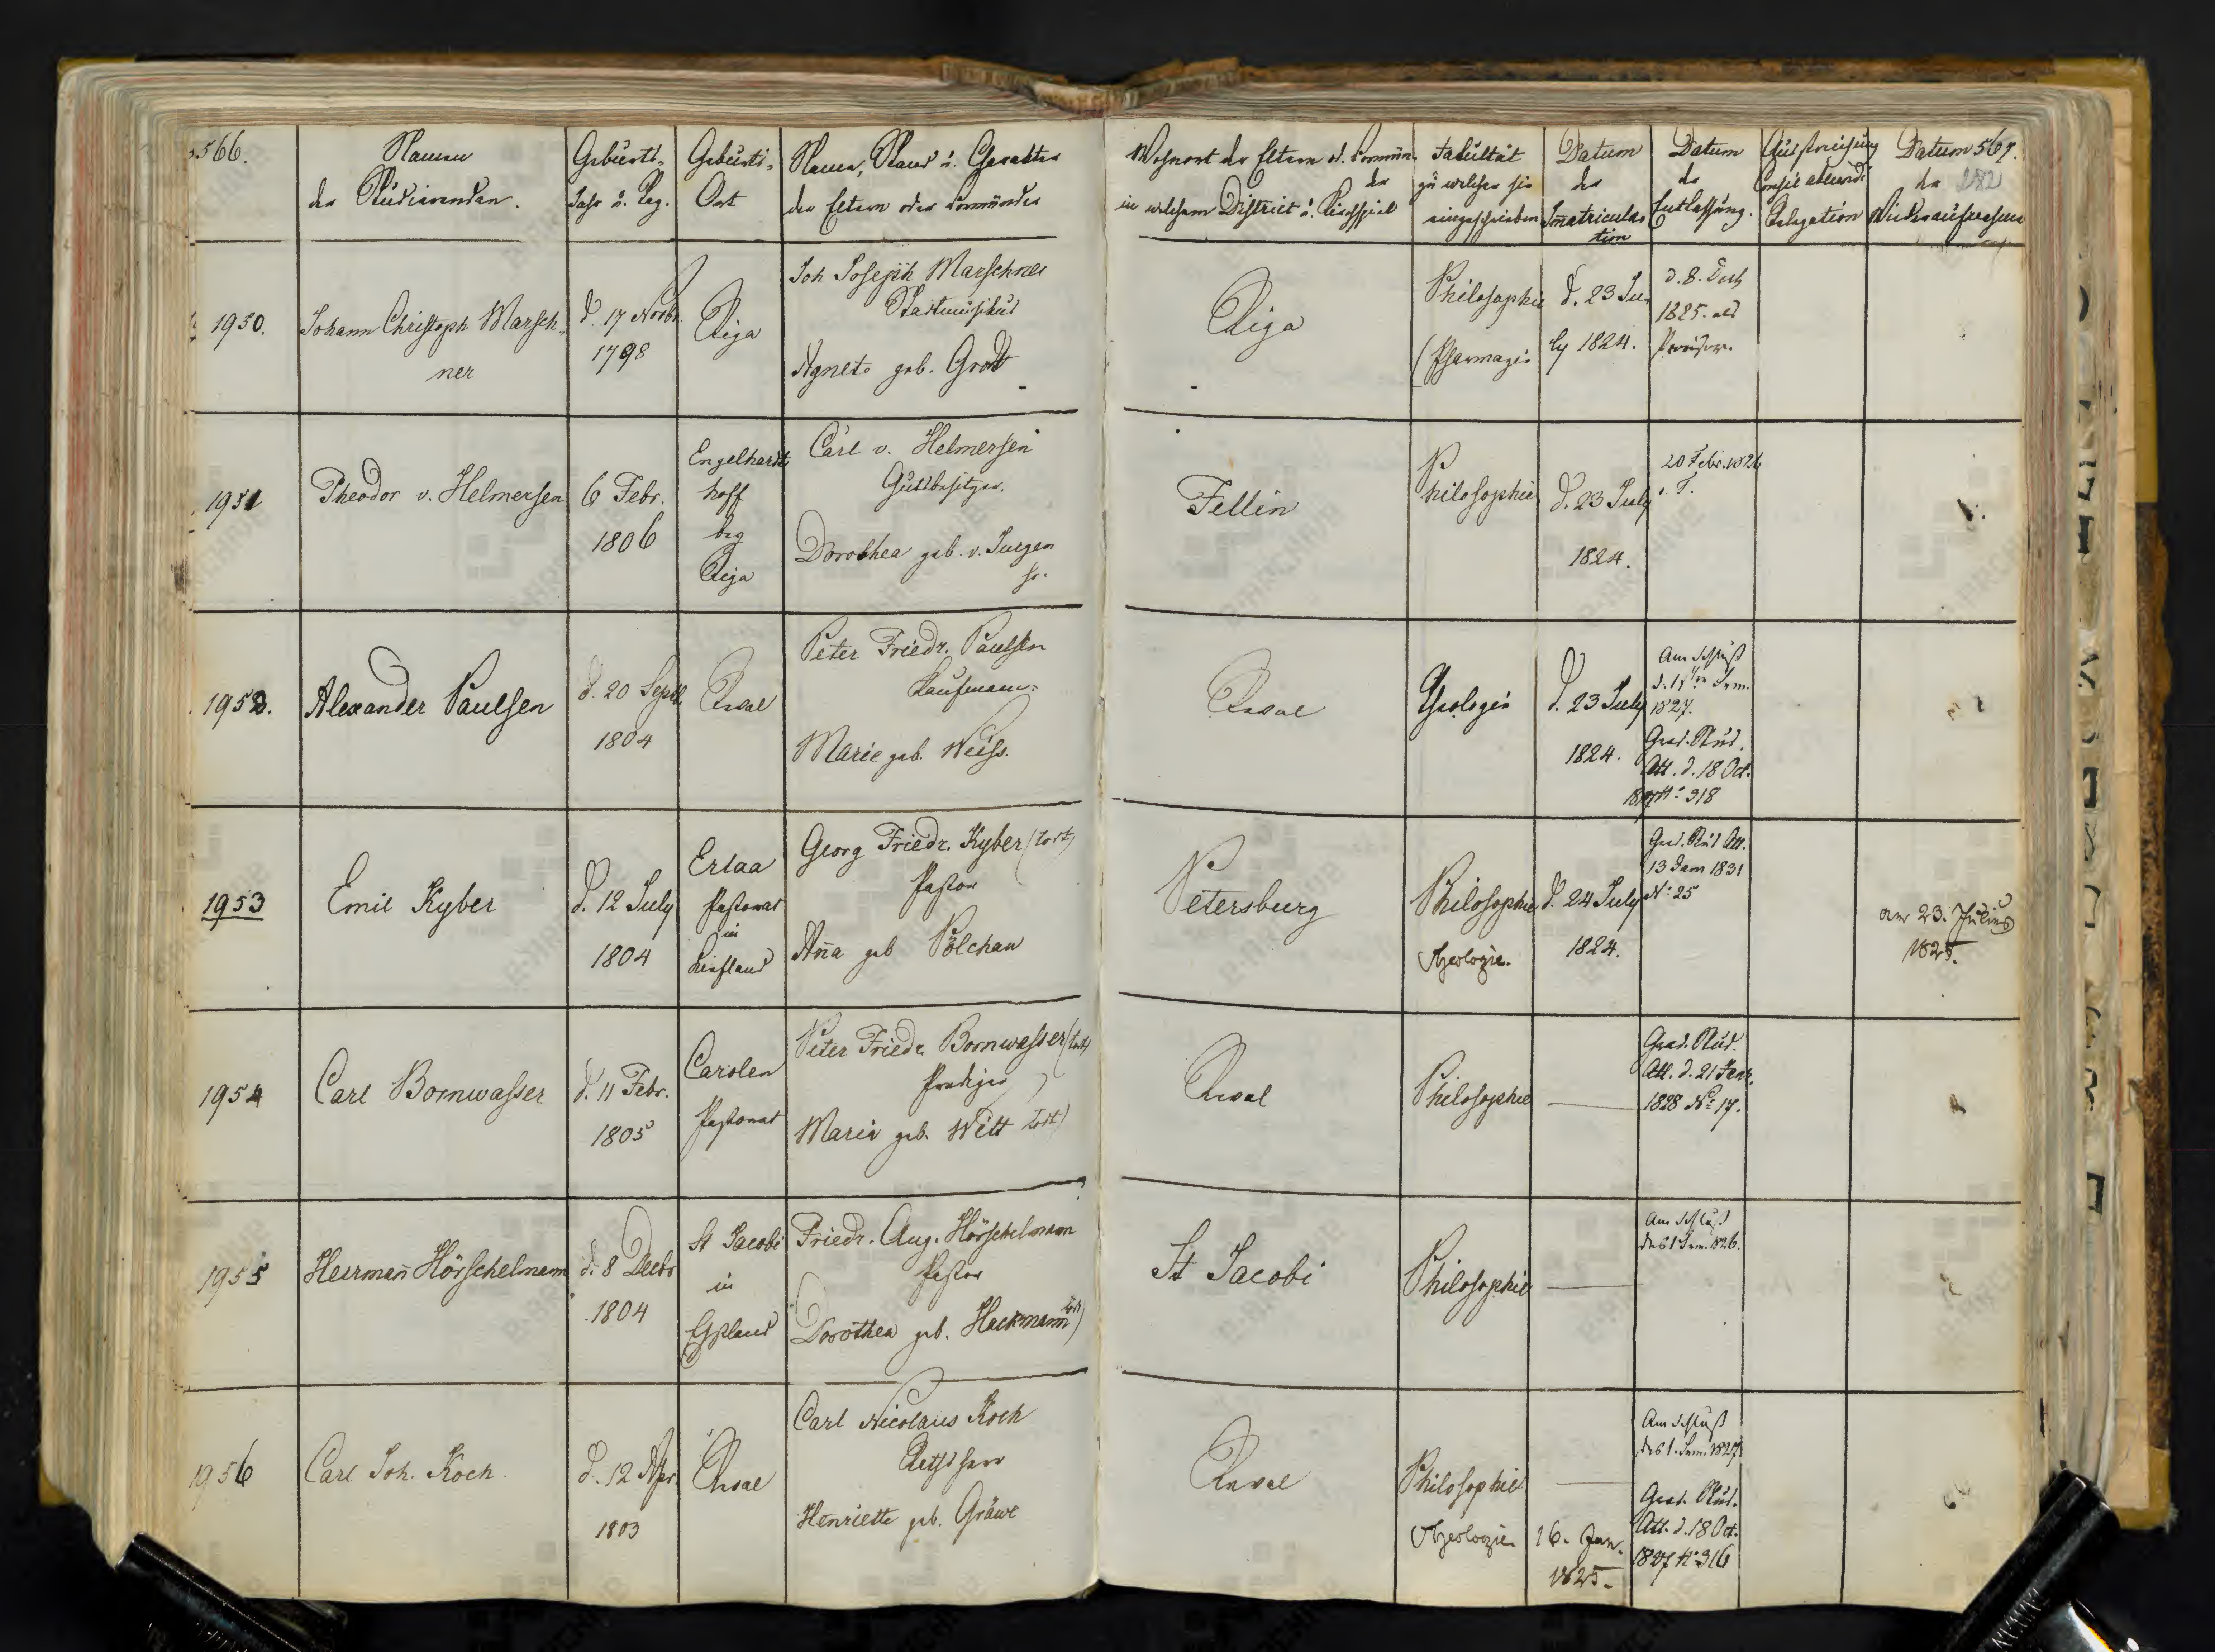 566.
Namen
der Studirenden.
Geburts-
Jahr u. Tag.
Geburts-
Ort
Namen, Stand u. Charakter
der Eltern oder Vormünder
Wohnort der Eltern od. Vormün-
der
in welchem District u. Kirchspiel
Fakultät
zu welcher sie
eingeschrieben
Datum
der
Im̄atricula-
tion
Datum
der
Entlassung.
Relegation
Datum
der
567.
282
1950.
Johann Christoph Marsch-
ner
d. 17 Novbr.
1798
Riga
Joh Joseph Marschner
Stadtmusikus
Agneta geb. Grott
Riga
Philosophie
(Pharmazie
d. 23 Ju-
ly 1824.
d. 8. Dech
1825. als
Provisor.
1951
Theodor v. Helmersen
6 Febr.
1806
Engelhardt
hoff
bey
Riga
Carl v. Helmersen
Gutsbesitzer.
Dorothea geb. v. Jurgen
Fellin
Philosophie
d. 23 July
1824.
20 Febr. 1826
1952.
Alexander Paulsen
d. 20 Septb.
1804
Reval
Peter Friedr. Paulsen
Kaufmann.
Marie geb. Weiss.
Reval
Theologie
d. 23 July
1824.
Am Schluß
1827.
Grad. Stud.
Att. d. 18 Oct.
1827 N: 318
1953
Emil Kyber
d. 12 July
1804
Erlaa
Pastorat
in
Liefland
Georg Friedr. Kyber (todt)
Pastor
Anna geb Pölchau
Petersburg
Philosophie
Theologie.
d. 24 July
1824.
Grad. Stud Att.
13 Jan 1831
N: 25
am 23. Julius
1825.
1954
Carl Bornwasser
d. 11 Febr.
1805
Carolen
Pastorat
Peter Friedr. Bornwasser (todt)
Prediger
Maria geb. Witt todt)
Reval
Philosophie
Grad. Stud.
Att. d. 21 Janr.
1828 N: 17.
1955
Herrmann Hörschelmann
d. 8 Decbr
1804
St Jacobi
in
Ehstland
Friedr. Aug. Hörschelmann
Pastor
Dorothea geb. Hackmann todt)
St Jacobi
Philosophie
Am Schluß
des 1 Sem. 1826.
1956
Carl Joh. Koch.
d. 12 Apr.
1803
Reval
Carl Nicolaus Koch
Rathsherr
Henriette geb. Gräwe
Reval
Philosophie
Theologie
16. Jan.
1825.
Am Schluß
des 1. Sem. 1827.
Grad. Stud.
Att. d. 18 Oct.
1827 N: 316